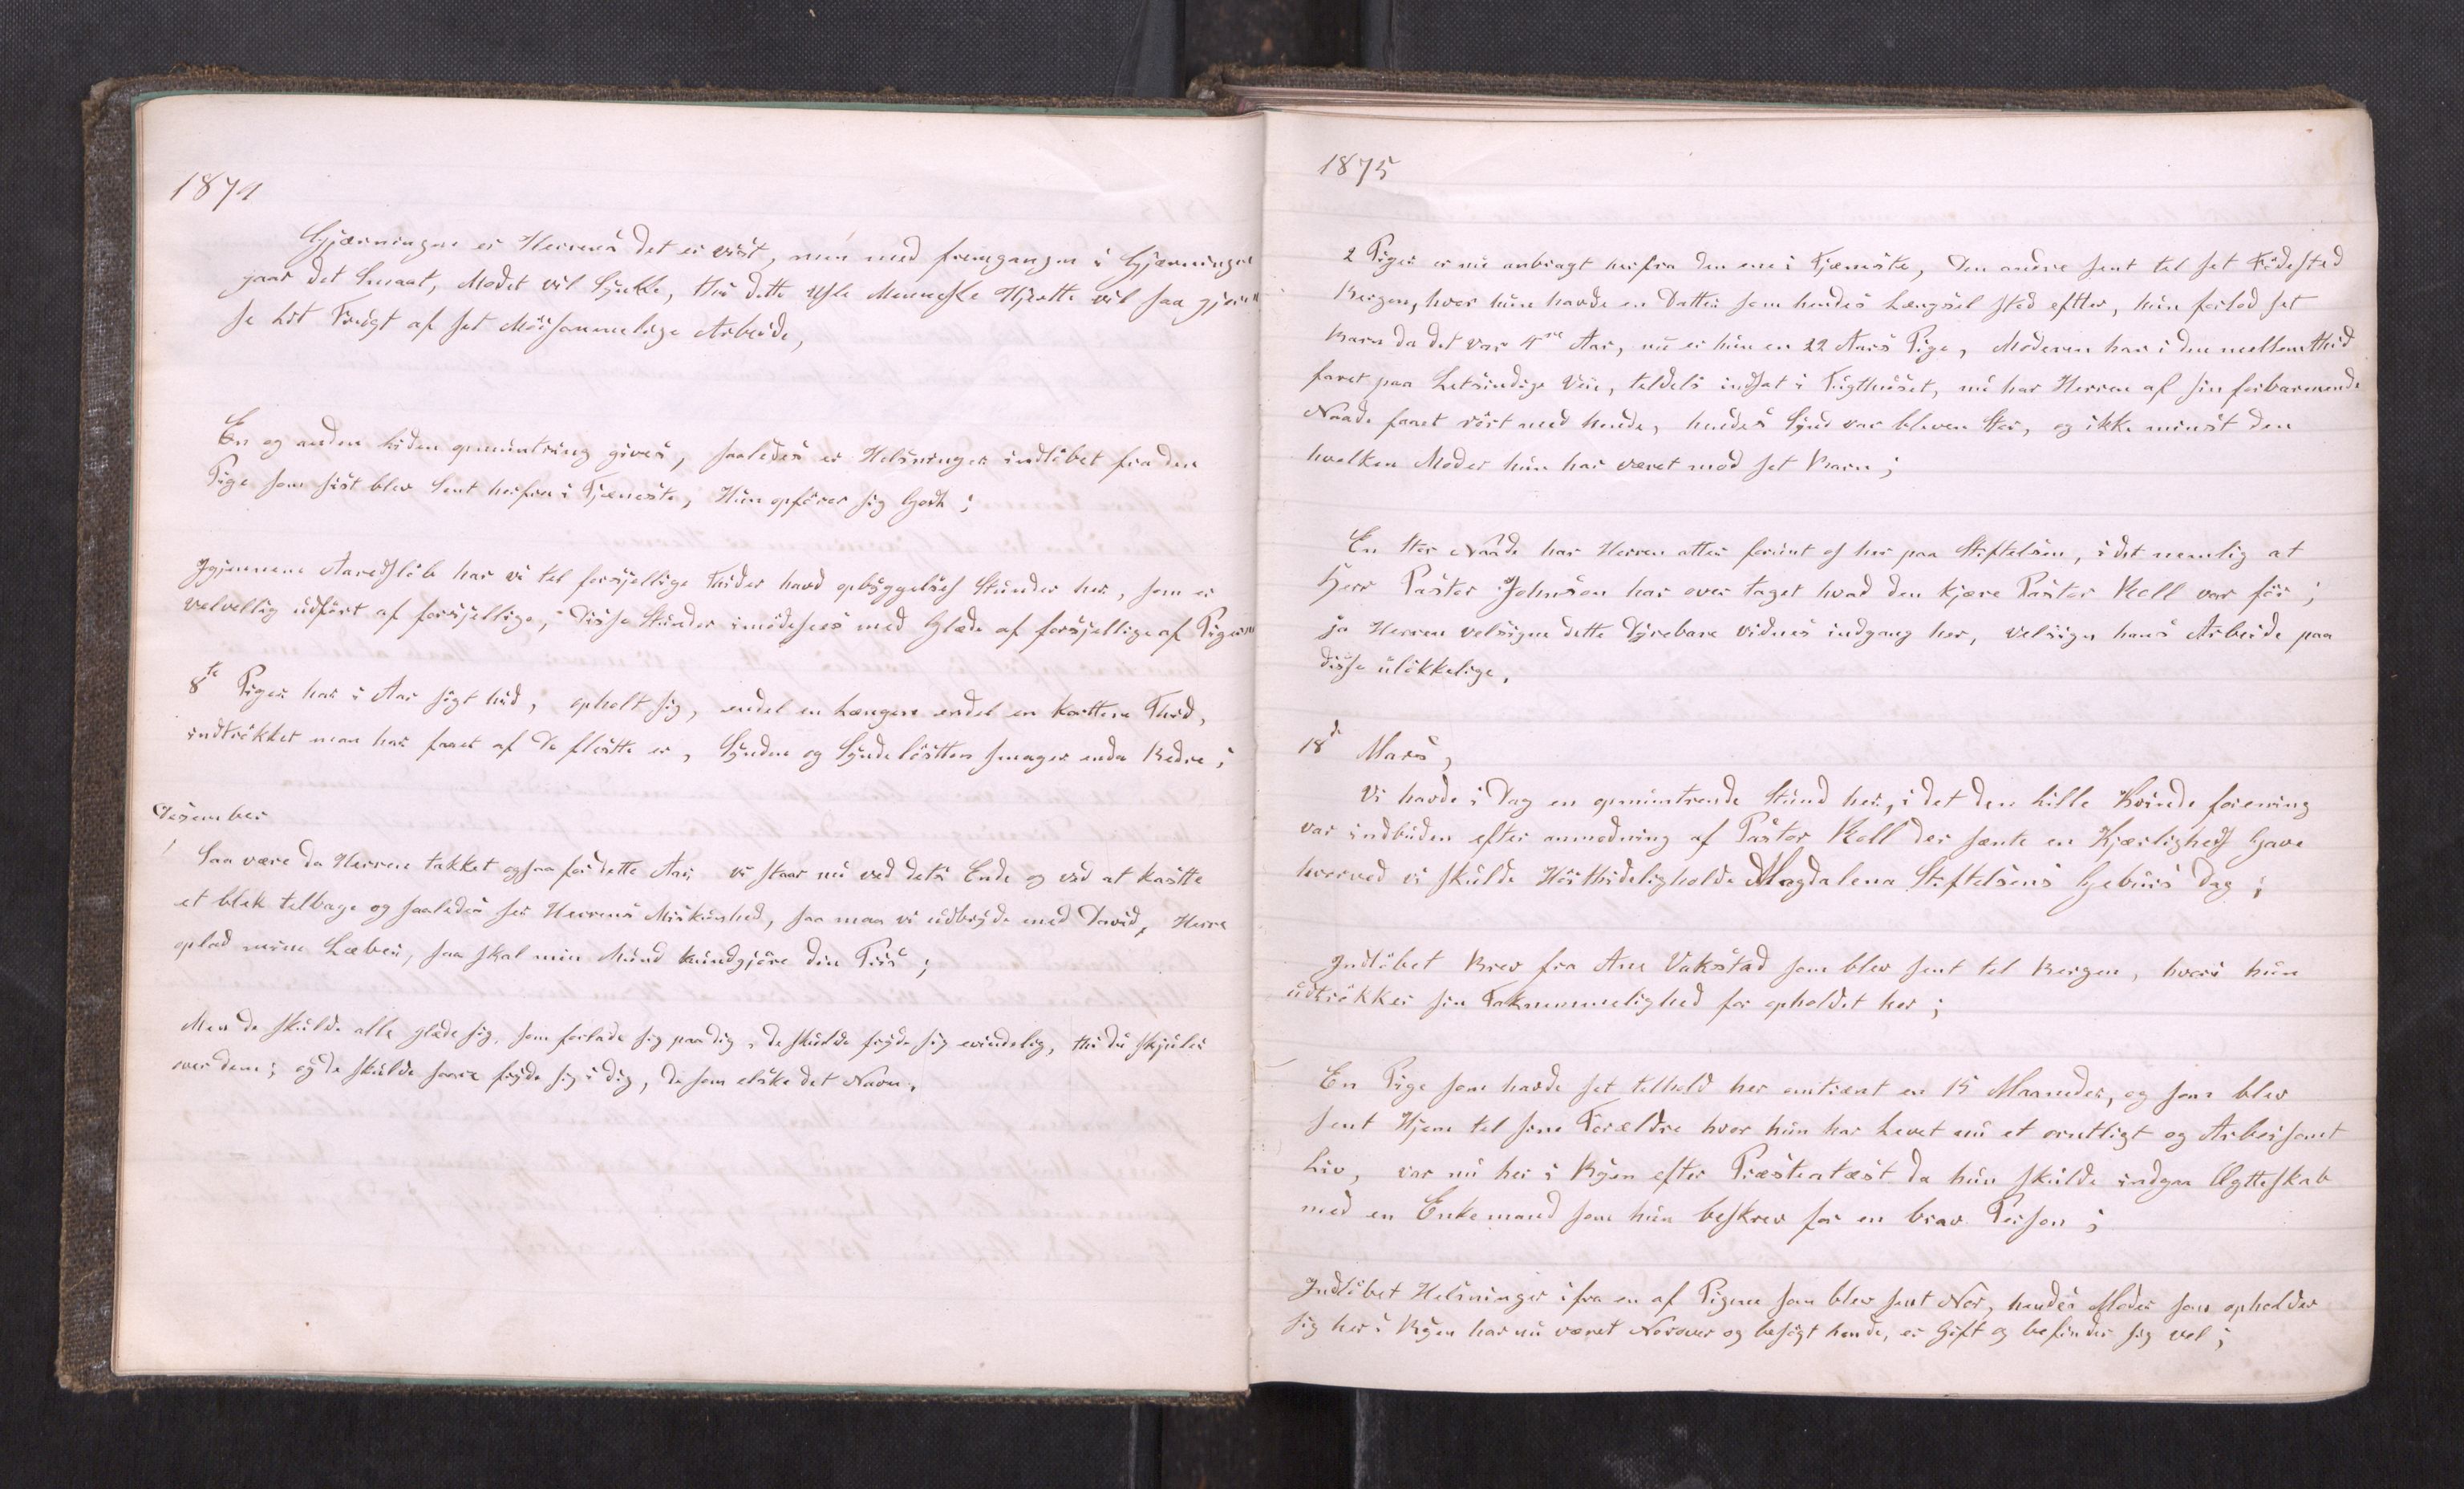 1874
Gjærningen er Herrens det er vist, men med fremgangen i Gjærningen
gaar det Smaat, Modet vil Synke, thi dette Usle Menneske Hjertte vil saa gjerne
se Lit Frugt af set Möisommelige Arbeide,
En og anden liden opmuntring gives, saaledes er Helsninger indlöbet fra den
Pige som sist blev Sent herfra i Tjæneste, Hun opförer sig Godt;
Igjennem Aaredslöb har vi tel forsjellige Thider havd opbyggelses Stunder her, som er
velvellig udfört af forsjellige, disse Stunder imödesees med Glæde af forsjellige af Pigerne
8te Piger har i Aar sögt hid, opholt sig, endel en Længere endel en kortere Thid,
indtrökket man har faaet af De fleste er, Synden og Syndelösten smager enda Bedre;
Desember
Saa være da Herren takket ogsaa for dette Aar, vi staar nu ved dets Ende og ved at kastte
et blik telbage og saaledes ser Herrens Miskunhed, saa maa vi udbryde med David, Herre
oplad mine Læber, saa skal min Mund kundgjöre din Pris;
Men de skulde alle glæde sig, som forlade sig paa dig, de skulde fryde sig evindelig, thi du skjuler
over dem; og de skulde saare fryde sig i dig, de som elske det Navn.
1875
2 Piger er nu anbragt herfra den ene i Tjæneste, den andre sent tel set Födested
Bergen, hvor hun havde en Datter som hendes Længsel stod eftter, hun forlod set
Barn da det var 4re Aar, nu er hun en 22 Aars Pige, Moderen har i den mellemthid
faret paa Letsindige Veie, teldels indsat i Tugthuset, nu har Herren af sin forbarmende
Naade faaet rört ved hende, hendes Synd var bleven Stor, og ikke minst den
hvelken Moder hun har været mod set Barn;
En Stor Naade har Herren atter forunt os her paa Stiftelsen, i det nemlig at
Herr Pastor Johnson har over taget hvad den kjære Pastor Koll var för;
ja Herren velsigne dette Dyrebare vidnes indgang her, velsign hans Arbeide paa
disse ulökkelige.
18de Mars,
Vi havde i Dag en opmuntrende Stund her, i det den lille Kvinde forening
var indbuden efter anmodning af Pastor Koll der sente en Kjærligheds Gave
hvorved vi skulde Höithideligholde Magdalena Stiftelsens Geburs Dag;
Indlöbet Brev fra Ane Vakstad som blev sent tel Bergen, hvori hun
udtrökker sin Taknemmelighed for opholdet her;
En Pige som havde set telhold her omtrent en 15 Maaneder, og som blev
sent Hjem tel sine Forældre hvor hun har Levet nu et orntligt og Arbeisomt
Liv, var nu her i Byen efter Præsteatæst da hun skulde indgaa Ægtteskab
med en Enkemand som hun beskrev for en brav Person;
Indlöbet Helsninger ifra en af Pigerne som blev sent Nor, hendes Moder som opholder
sig her i Byen har nu været Norover og besögt hende, er Gift og befinder sig vel;